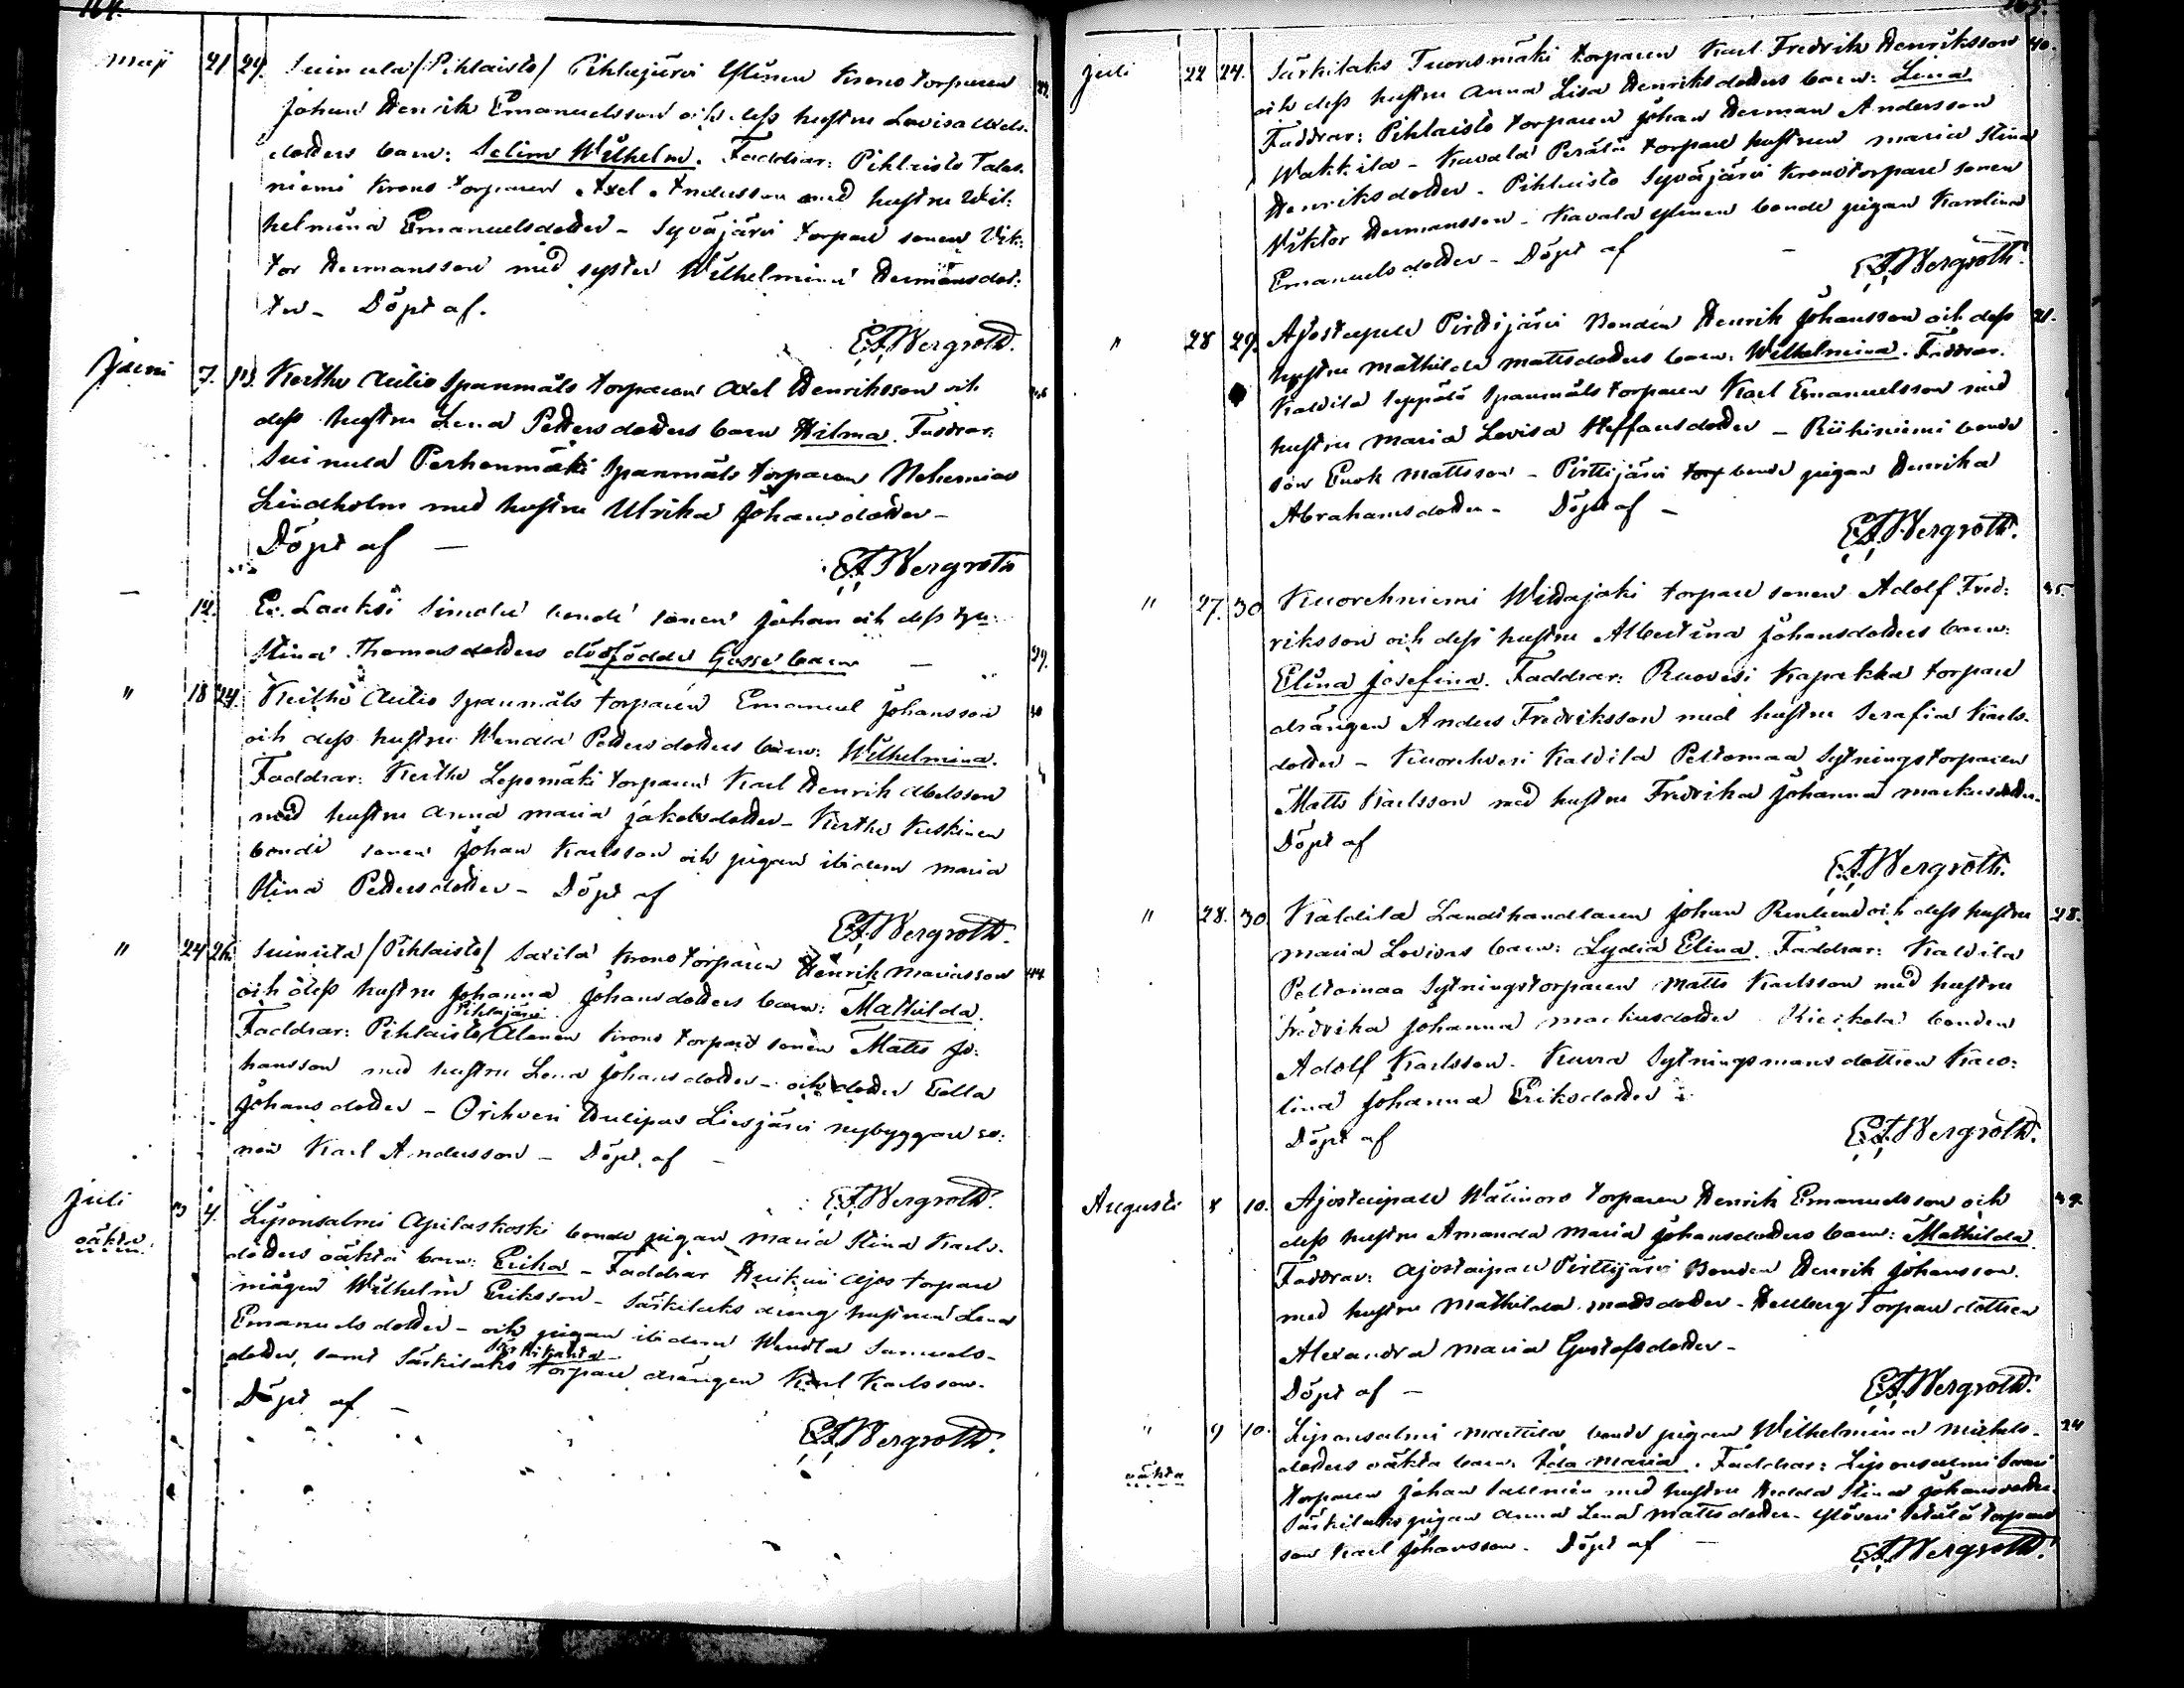 164.
Maji 21 24. Suinula /Pihlaisto/ Pihlajärvi Ylinen Krono torparen
Johan Henrik Emanuelsson och dess hustru Lovisa Axels-
dotters barn: Selim Wilhelm. Faddrar: Pihlaisto Talas-
niemi Krono torparen Axel Andersson med hustru Wil-
helmina Emanuelsdotter - Syväjärvi torpare sonen Vik-
tor Hermansson med syster Wilhelmina Hermansdot-
ter - Döpt af.
E.A.Wergroth.
Juni 7. 13. Kertho Autio Spanmåls torparen Axel Henriksson och
dess hustru Lena Pettersdotters barn Hilma. Faddrar:
Suinula Perhonmäki Spanmåls torparen Nehemias
Lindholm med hustru Ulrika Johansdotter -
Döpt af -
E.A.Wergroth
- 12. Er. Laaksi Simola bonde sonen Johan och dess hu-
Stina Thomasdotters dödfödda Gosse barn - 39.
" 18 24. Kertho Autio Spanmåls torparen Emanuel Johansson
och dess hustru Wendla Pettersdotters barn: Wilhelmina.
Faddrar: Kertho Lepomäki torparen Karl Henrik Abelsson
med hustru Anna Maria Jakobsdotter - Kertho Keskinen
bonde sonen Johan Karlsson och pigan ibidem Maria
Stina Pettersdotter - Döpt af
E.A.Wergroth.
" 24 26. Suinula /Pihlaisto/ Saxila Krono torparen Henrik Mariasson 44.
och dess hustru Johanna Johansdotters barn: Mathilda.
Pihlajärvi
Faddrar: Pihlaisto Alanen Krono torpare sonen Matts Jo-
hansson med hustru Lena Johansdotter - och dotter Edla
Johansdotter - Orihvesi Hulipas Liesjärvi nybyggare so-
nen Karl Andersson - Döpt af -
E.A.Wergroth.
Juli 3 4. Liponsalmi Apilaskoski bonde pigan Maria Stina Karls-
oäkta
dotters oäkta barn: Erika - Faddrar Ajos torpare
mågen Wilhelm Eriksson - Särkilaks dreng hustrun Lena
Emanuelsdotter - och pigan ibidem Wendla Samuels-
dotter, samt Särkilaks torpare drängen Karl Karlsson.
Döpt af -
E.A.Wergroth.
165.
Juli 22 24. Särkilaks Tuorismäki torparen Karl Fredrik Henriksson 40.
och dess hustru Anna Lisa Henriksdotters barn: Lina
Faddrar: Pihlaisto torparen Johan Herman Andersson
Wakkila - Kavala Perälä torpare hustrun Maria Stina
Henriksdotter - Pihlaisto Syväjärvi Kronotorpare sonen
Viktor Hermansson - Kavala Ylinen bonde pigan Karolina
Emanuelsdotter - Döpt af -
E.A.Wergroth.
" 28 29. Ajostaipale Pirttijärvi Bonden Henrik Johansson och dess 21.
hustru Mathilda Mattsdotters barn: Wilhelmina. Faddrar.
Kaldila Seppälä Spanmåls torparen Karl Emanuelsson med
hustru Maria Lovisa Steffansdotter - Riihiniemi bonde
son Enok Mattsson - Pirttijärvi torp bonde pigan Henrika
Abrahamsdotter - Döpt af -
E.A.Wergroth.
" 27. 30 Kuorehniemi Widajoki torpare sonen Adolf Fred- 35.
riksson och dess hustru Albertina Johansdotters barn:
Elina Josefina. Faddrar: Ruovesi Kapakka torpare
drängen Anders Fredriksson med hustru Serafia Karls-
dotter - Kuorehvesi Kaldila Peltomaa Sytningstorparen
Matts Karlsson med hustru Fredrika Johanna Markusdotter.
Döpt af
E.A.Wergroth.
" 28. 30. Kaldila Landthandlaren Johan och dess hustru 28.
Maria Lovisas barn: Lydia Elina. Faddrar: Kaldila
Peltomaa Sytningstorparen Matts Karlsson med hustru
Fredrika Johanna Markusdotter bonden
Adolf Karlsson. Kuvra Sytningsmans dottren Karo-
lina Johanna Eriksdotter
Döpt af
E.A.Wergroth.
Augusti 8 10. Ajostaipale Wälimors torparen Henrik Emanuelsson och 39.
dess hustru Amanda Maria Johansdotters barn: Mathilda.
Faddrar: Ajostaipale Pirttijärvi Bonden Henrik Johansson.
med hustru Mathilda Mattsdotter - Hellberg Torpare dottren
Alexandra Maria Gustafsdotter -
Döpt af -
E.A.Wergroth.
" 9 10. Liponsalmi Mattila bonde pigan Wilhelmina Michels- 24
oäkta
dotters oäkta barn: Ida Maria. Faddrar: Liponsalmi
torparen Johan Sallmén med hustru Hedda Stina Johansdotter.
Särkilaks pigan Anna Lena Mattsdotter - torpare
son Karl Johansson. Döpt af -
E.A.Wergroth.